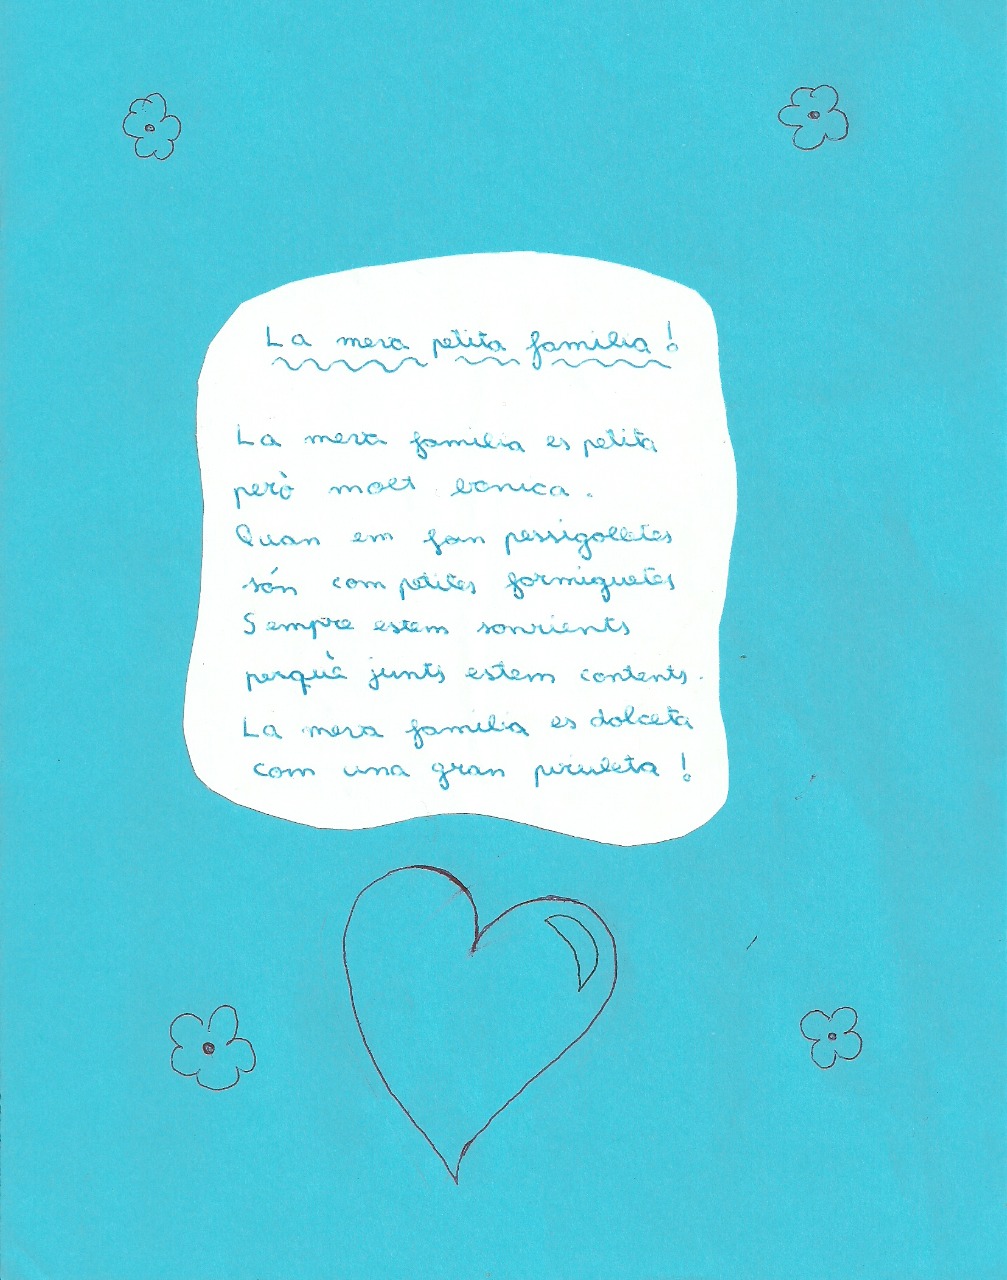 La meva petita família!
La meva família es petita
però molt bonica.
Quan em fan pessigolletes
són com petites formiguetes
Sempre estem sonrients
perquè junts estem contents.
La meva família es dolceta
com una gran piruleta!